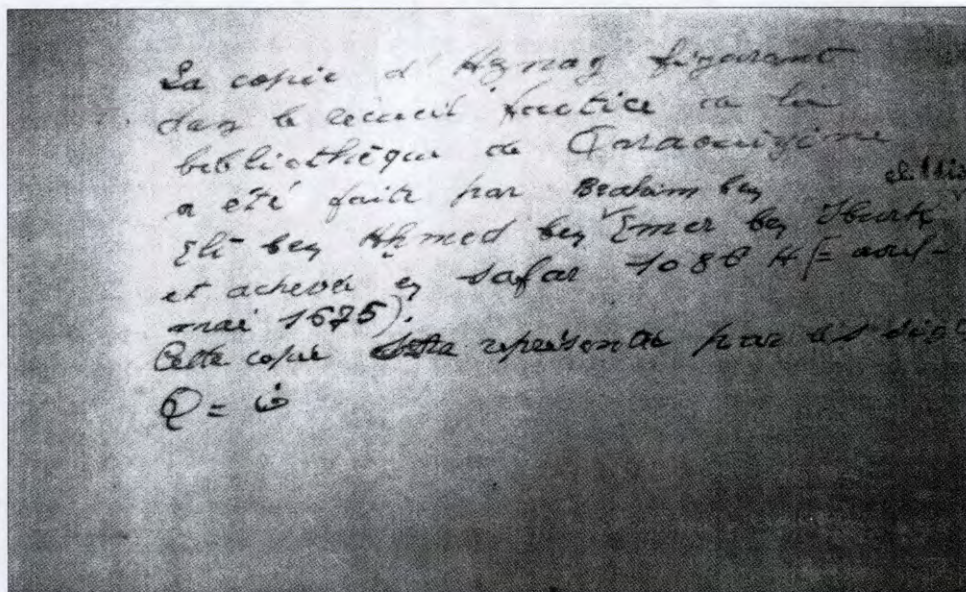 La copie d'Aznag figurant
dans le recueil factice de la
bibliothèque de Taraouizine
a été faite par Brahim ben
Eli ben Aḥmed ben Emer ben
et achevée en safar 1086 H (= avril-
mai 1675).
Cette copie sera représentée par les
Q = ق